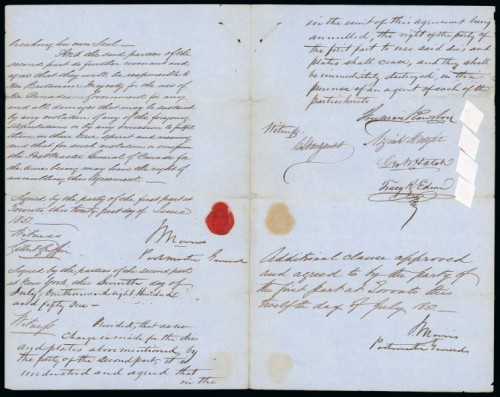 breaking his own Seal. —
And the said parties of the
second part do further covenant and
agree that they will be responsible to
Her Britannic Majesty for the use of
the Canadian Government for any
and all damages that may be sustained
by any violation of any of the foregoing
stipulations or by any omission to fulfil
them on their true spirit and meaning
and that for such violation or omission
the PostMaster General of Canada for
the time being may have the right of
annulling this Agreement. —
Signed by the party of the first part at
Toronto this twenty first day of June
1851.
Witness
J Morris
Postmaster General
Signed by the parties of the second part
at New York this seventh day of
July, One thousand eight Hundred
and fifty One —
Witness Provided, that as no
Charge is made for the dies
and plates above mentioned, by
the party of the second part, it is
understood and agreed that
in the
in the event of this agreement being
annulled, the right of the party of
the first part to use said dies and
plates shall cease, and they shall
be immediately destroyed, in the
presence of an agent of each of the
parties hereto
Freeman Rawdon
Witness
Neziah Wright
Geo W Hatch
Tracy R Edson
Additional clause approved
and agreed to by the party of
the first part at Toronto this
twelfth day of July &c —
J Morris
Postmaster General